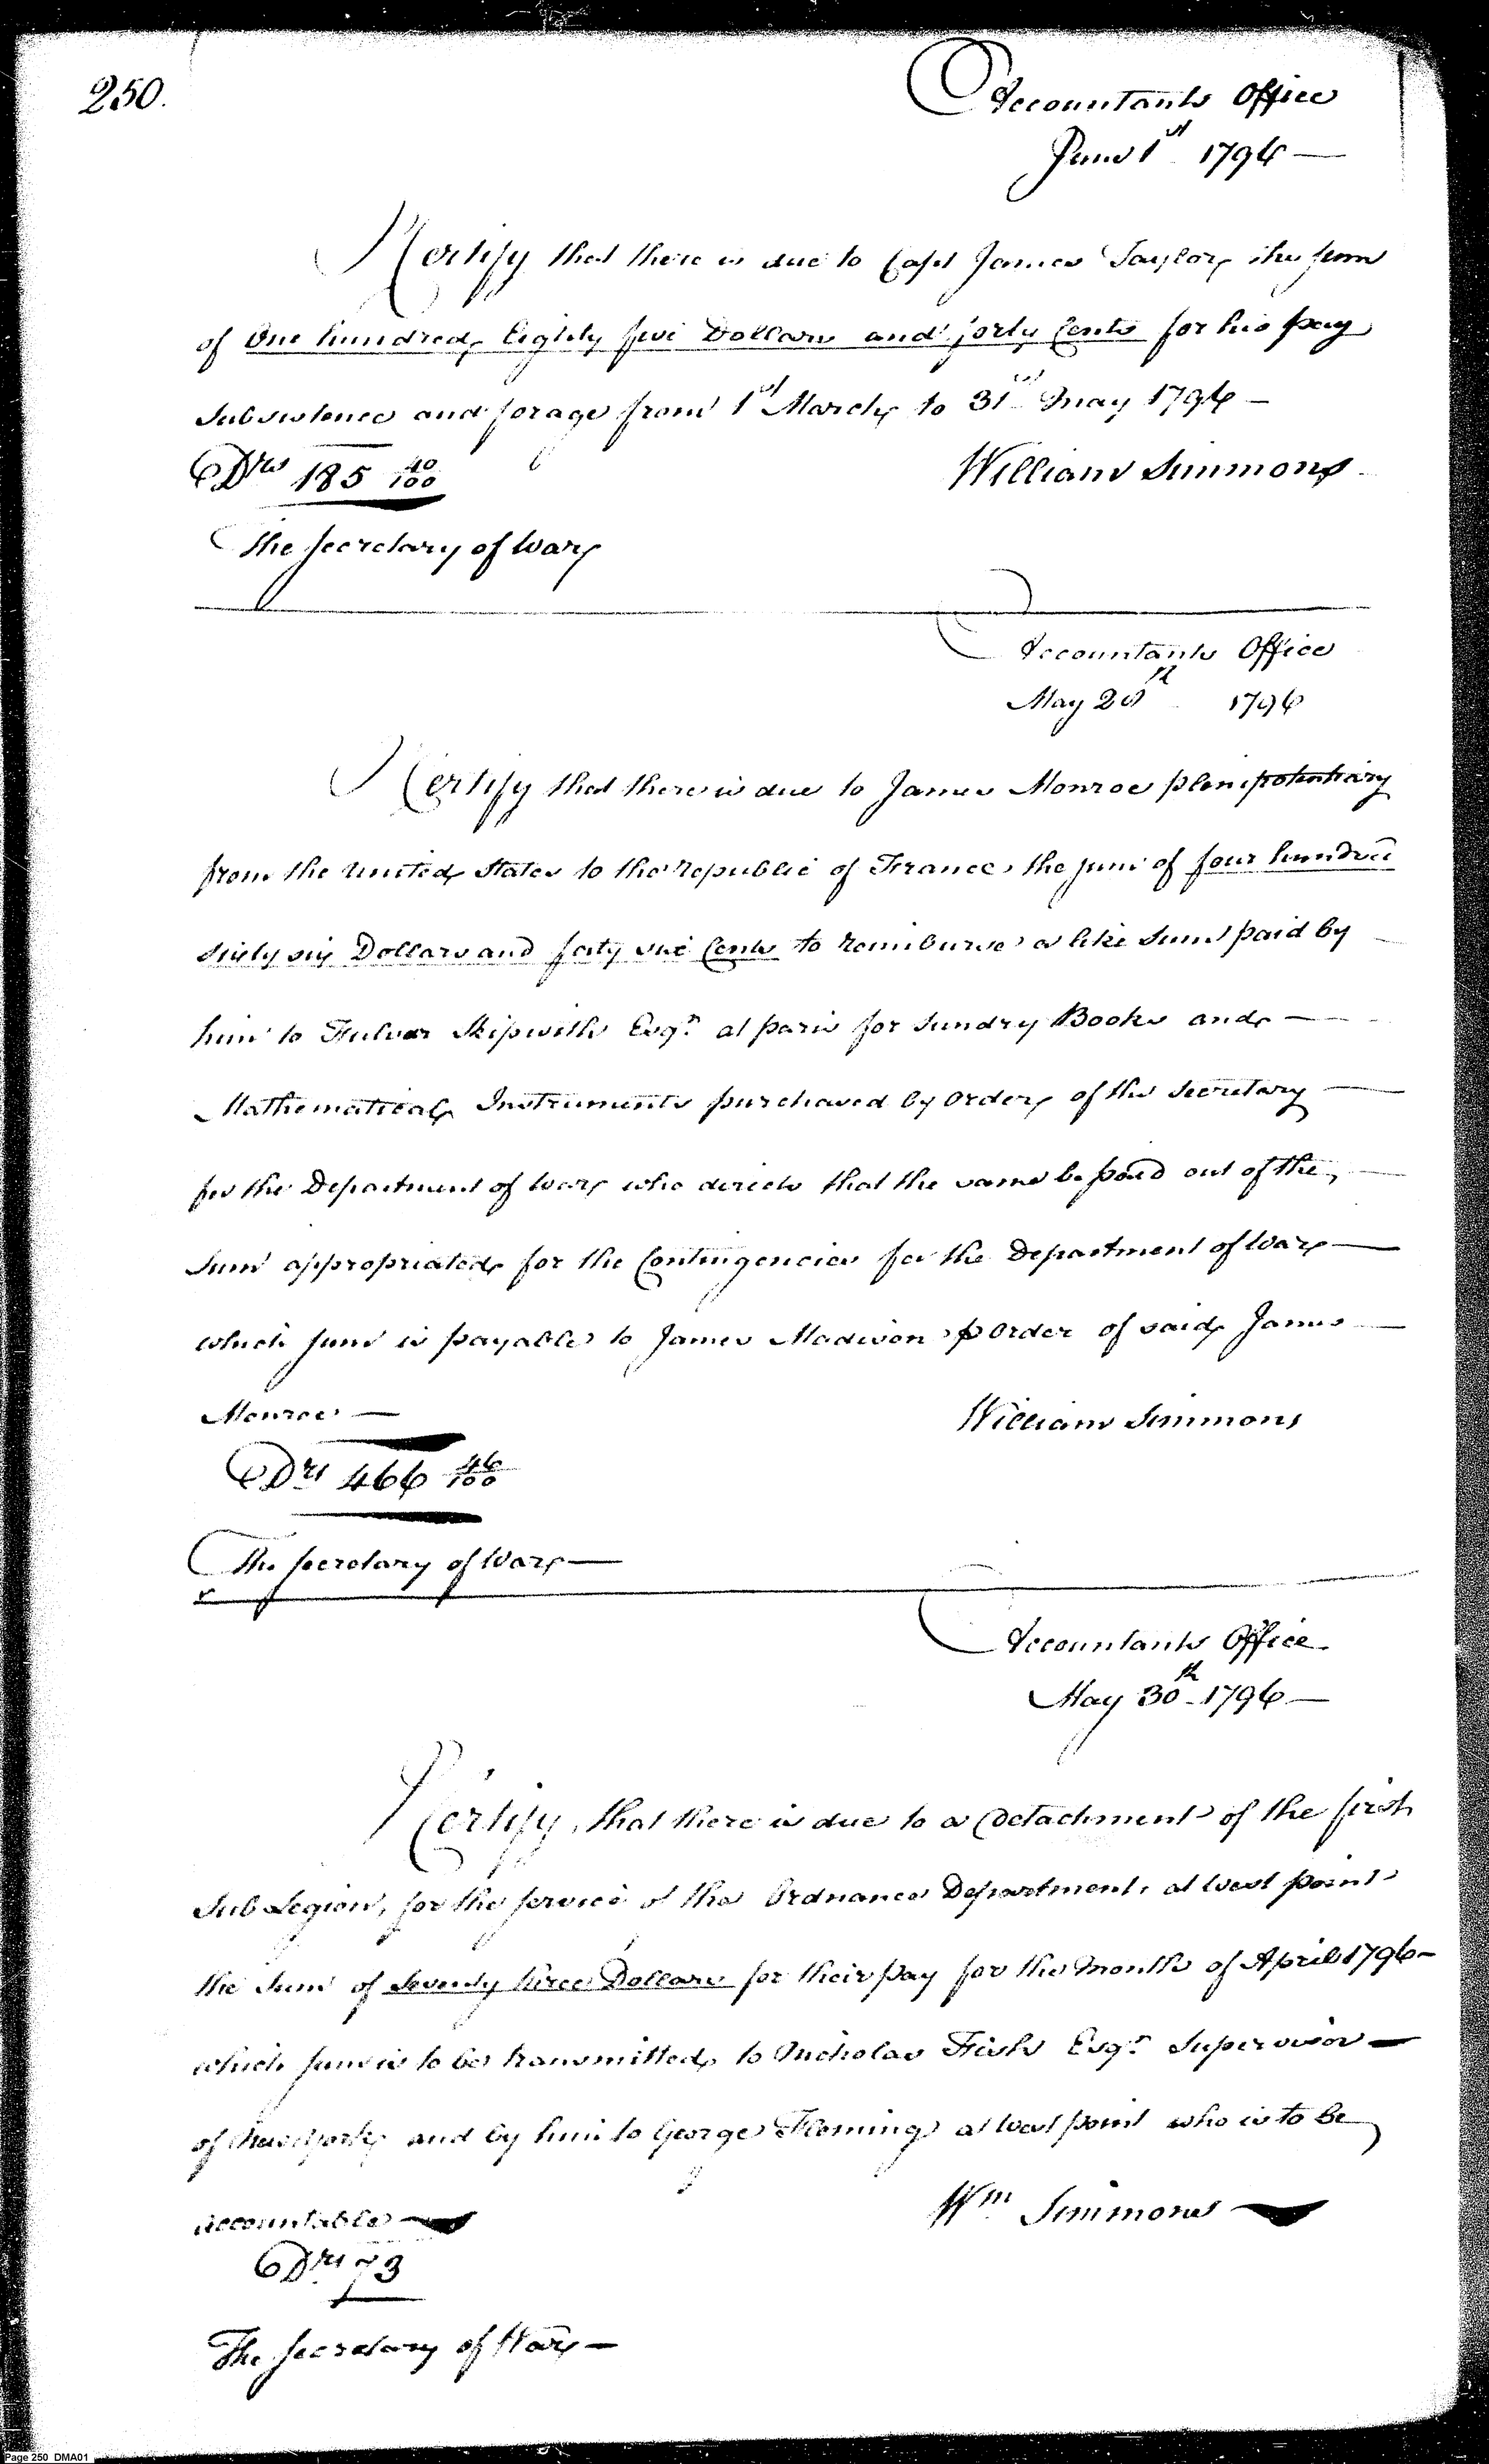 250.
Accountants Office
June 1st 1796 —
I Certify that there is due to Capt James Taylor, the sum
of One hundred, Eighty five Dollars and forty Cents for his pay
Subsistence and forage from 1st March, to 31st May 1796 —
Drs 185 40/100
William Simmons
The Secretary of War
Accountants Office
May 20th 1796
I Certify that there is due to James Monroe plenipotentiary
from the United States to the republic of France, the sum of four hundred
sixty six Dollars and forty six Cents to reimburse a like sum paid by
him to Fulwar Skipwith Esqr. at paris for Sundry Books and —
Mathematical Instruments purchased by order of the Secretary —
for the Department of War who directs that the same be paid out of the —
Sum appropriated for the Contingencies for the Department of War —
which sum is payable to James Madison p order of said James —
Monroe —
William Simmons
Drs 466 46/100
The Secretary of War —
Accountants Office
May 30th 1796 —
I Certify, that there is due to a Detachment of the first
Sub Legion, for the service of the Ordnance Department, at West point
the Sum of Seventy three Dollars for their pay for the Month of April 1796 —
which sum is to be transmitted to Nicholas Fish Esqr. Supervisor —
of New York, and by him to George Fleming at West point who is to be
accountable —
Wm Simmons —
Drs 73
The Secretary of War —
Page 250 DMA01